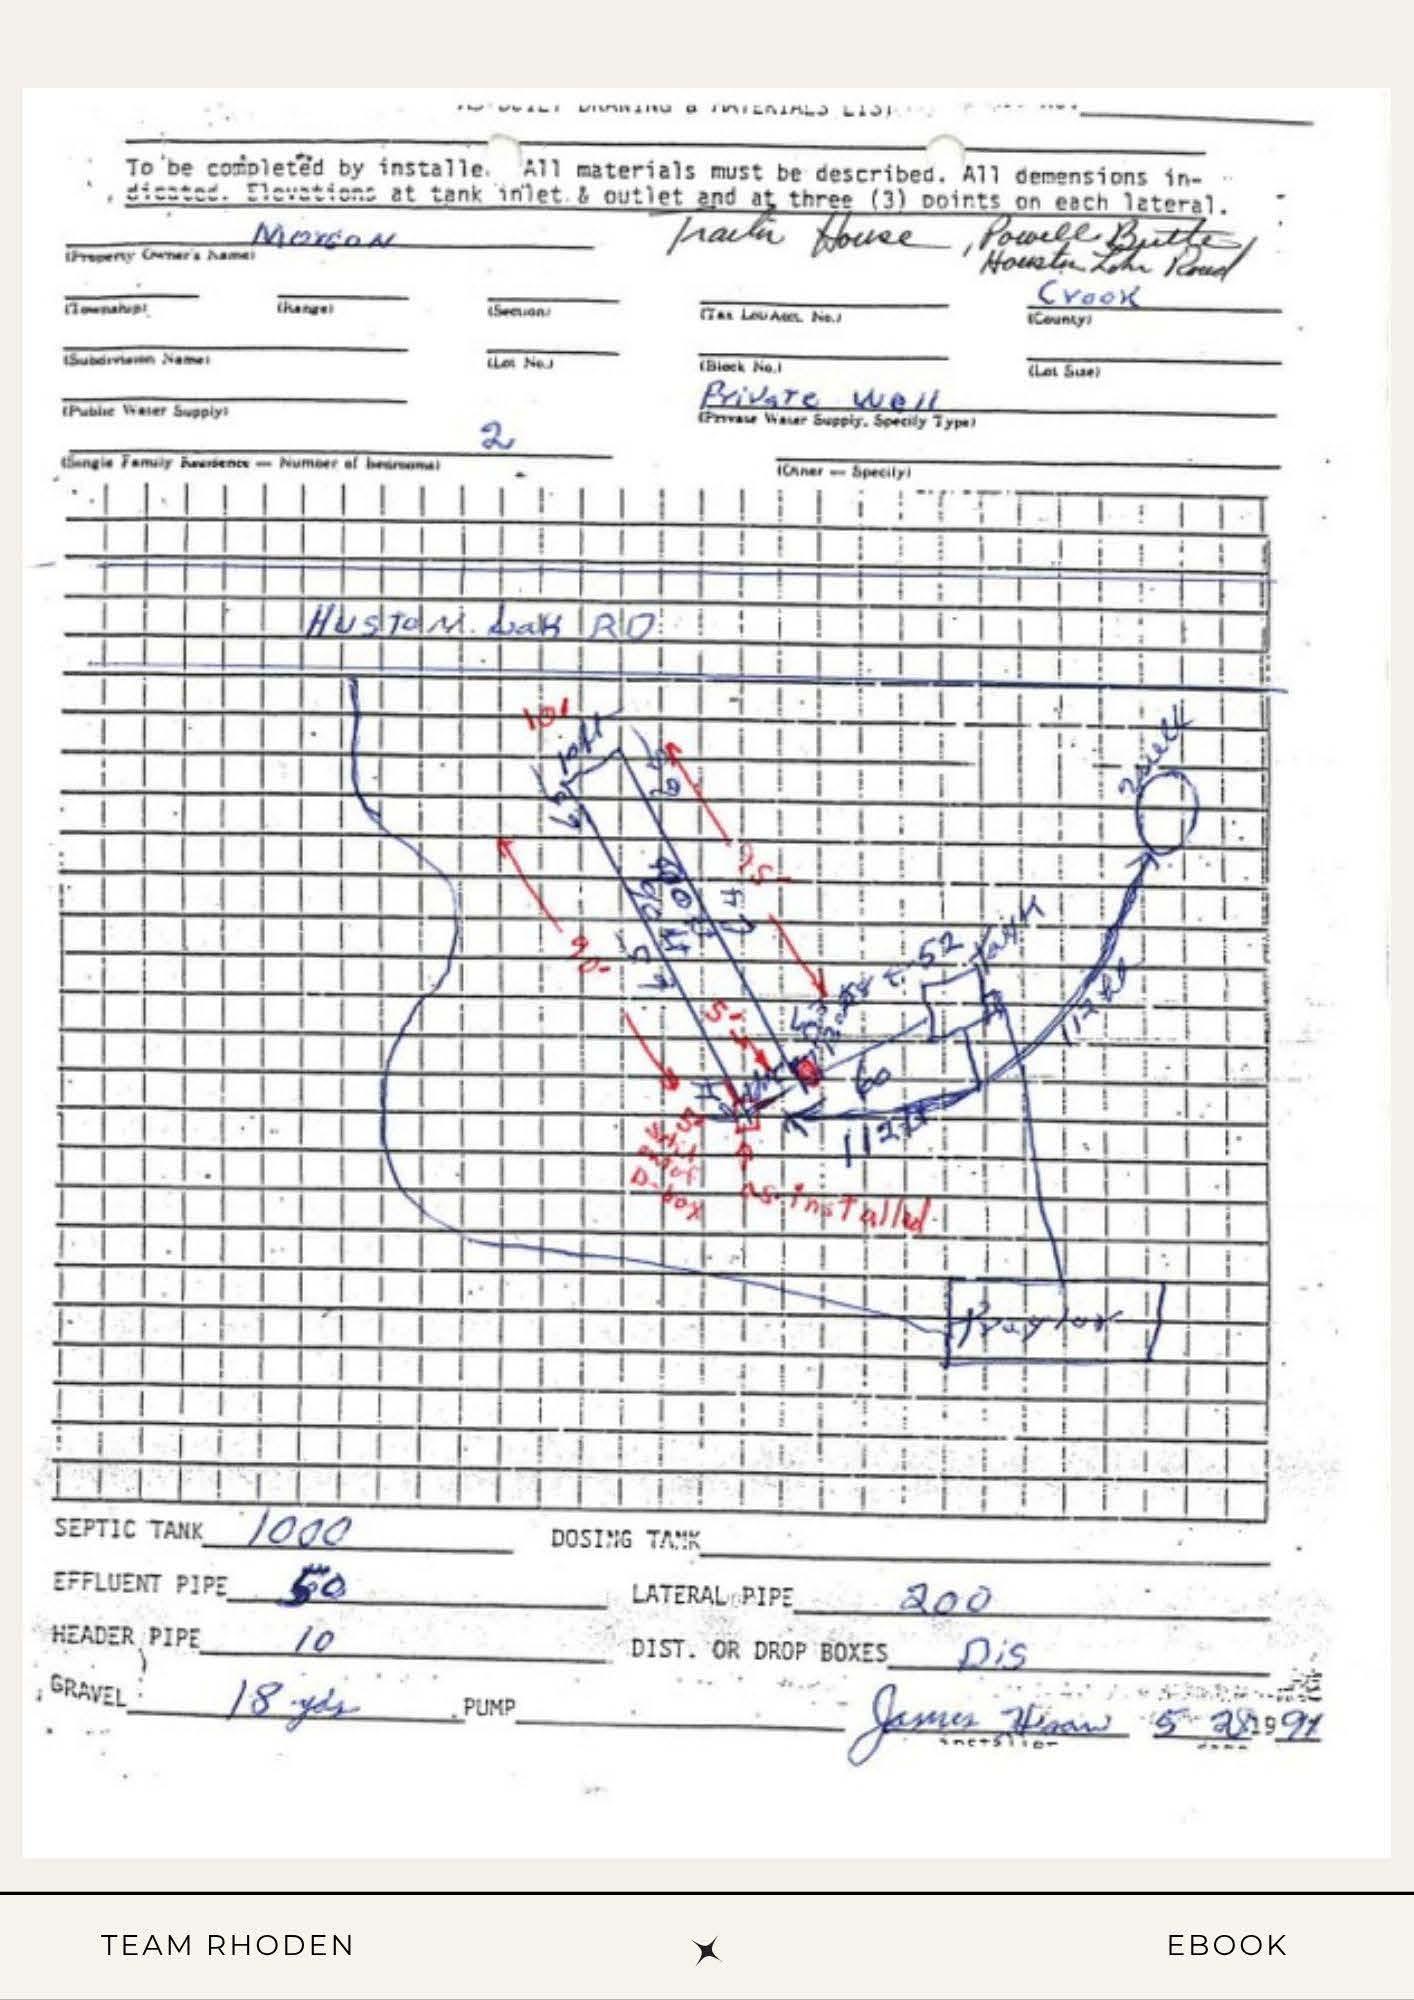 AS-BUILT DRAWING & MATERIALS LIST
To be completed by installe. All materials must be described. All demensions in-
dicated. Elevations at tank inlet & outlet and at three (3) points on each lateral.
Morgan
(Property Owner's Name)
House, Powell Butte
Houston Lake Road
Crook
(Township)
(Range)
(Section)
(Tax Lot/Acct. No.)
(County)
(Subdivision Name)
(Lot No.)
(Block No.)
(Lot Size)
Private Well
(Public Water Supply)
(Private Water Supply, Specify Type)
2
(Single Family Residence — Number of bedrooms)
(Other — Specify)
Huston Lak RD
10'
10ft
well
95'
100 ft
90 ft
90'
52
Tank
112 ft
5'
60
112 ft
D-box
as installed
SEPTIC TANK 1000
DOSING TANK
EFFLUENT PIPE 50
LATERAL PIPE 200
HEADER PIPE 10
DIST. OR DROP BOXES Dis
GRAVEL 18 yds
PUMP
James
5 28 1991
installer
date
TEAM RHODEN
EBOOK